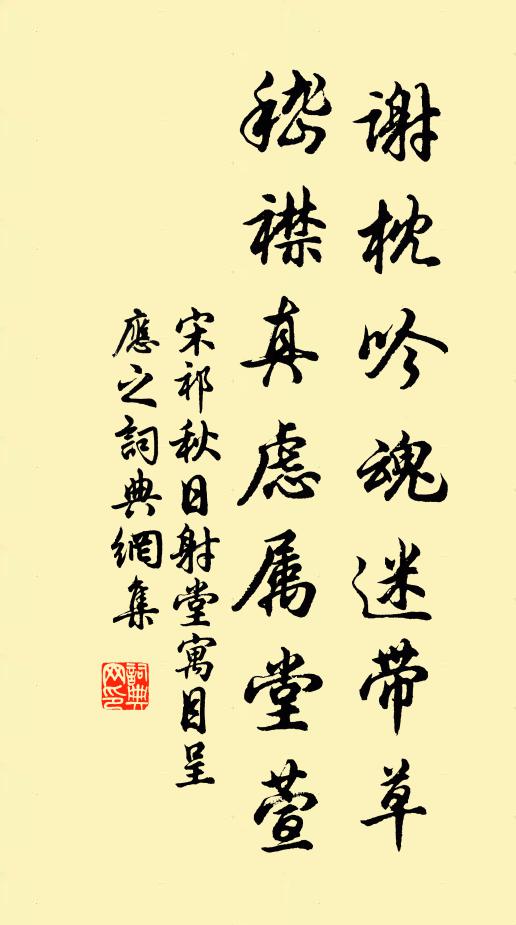 谢枕吟魂迷带草
嵇襟真虑属堂萱
宋祁秋日射堂寓目呈
應之詞典網集
詞典网印